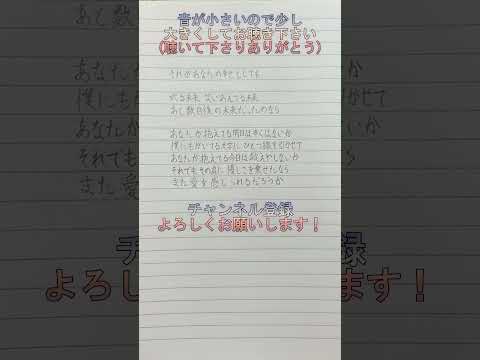 音が小さいので少し
大きくしてお聴き下さい
(聴いて下さりありがとう)
それがあなたの幸せとしても
あと数日後の未来だったのなら
あなたが抱えてる明日は辛くはないか
僕にもがいてる文字にひとつ線を引かせて
あなたが抱えてる今日は救えやしないか
それでもその肩に優しさを乗せたなら
また愛を感じられるだろうか
チャンネル登録
よろしくお願いします！